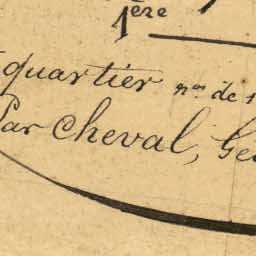 1ère
quartier nos de
Par Cheval,